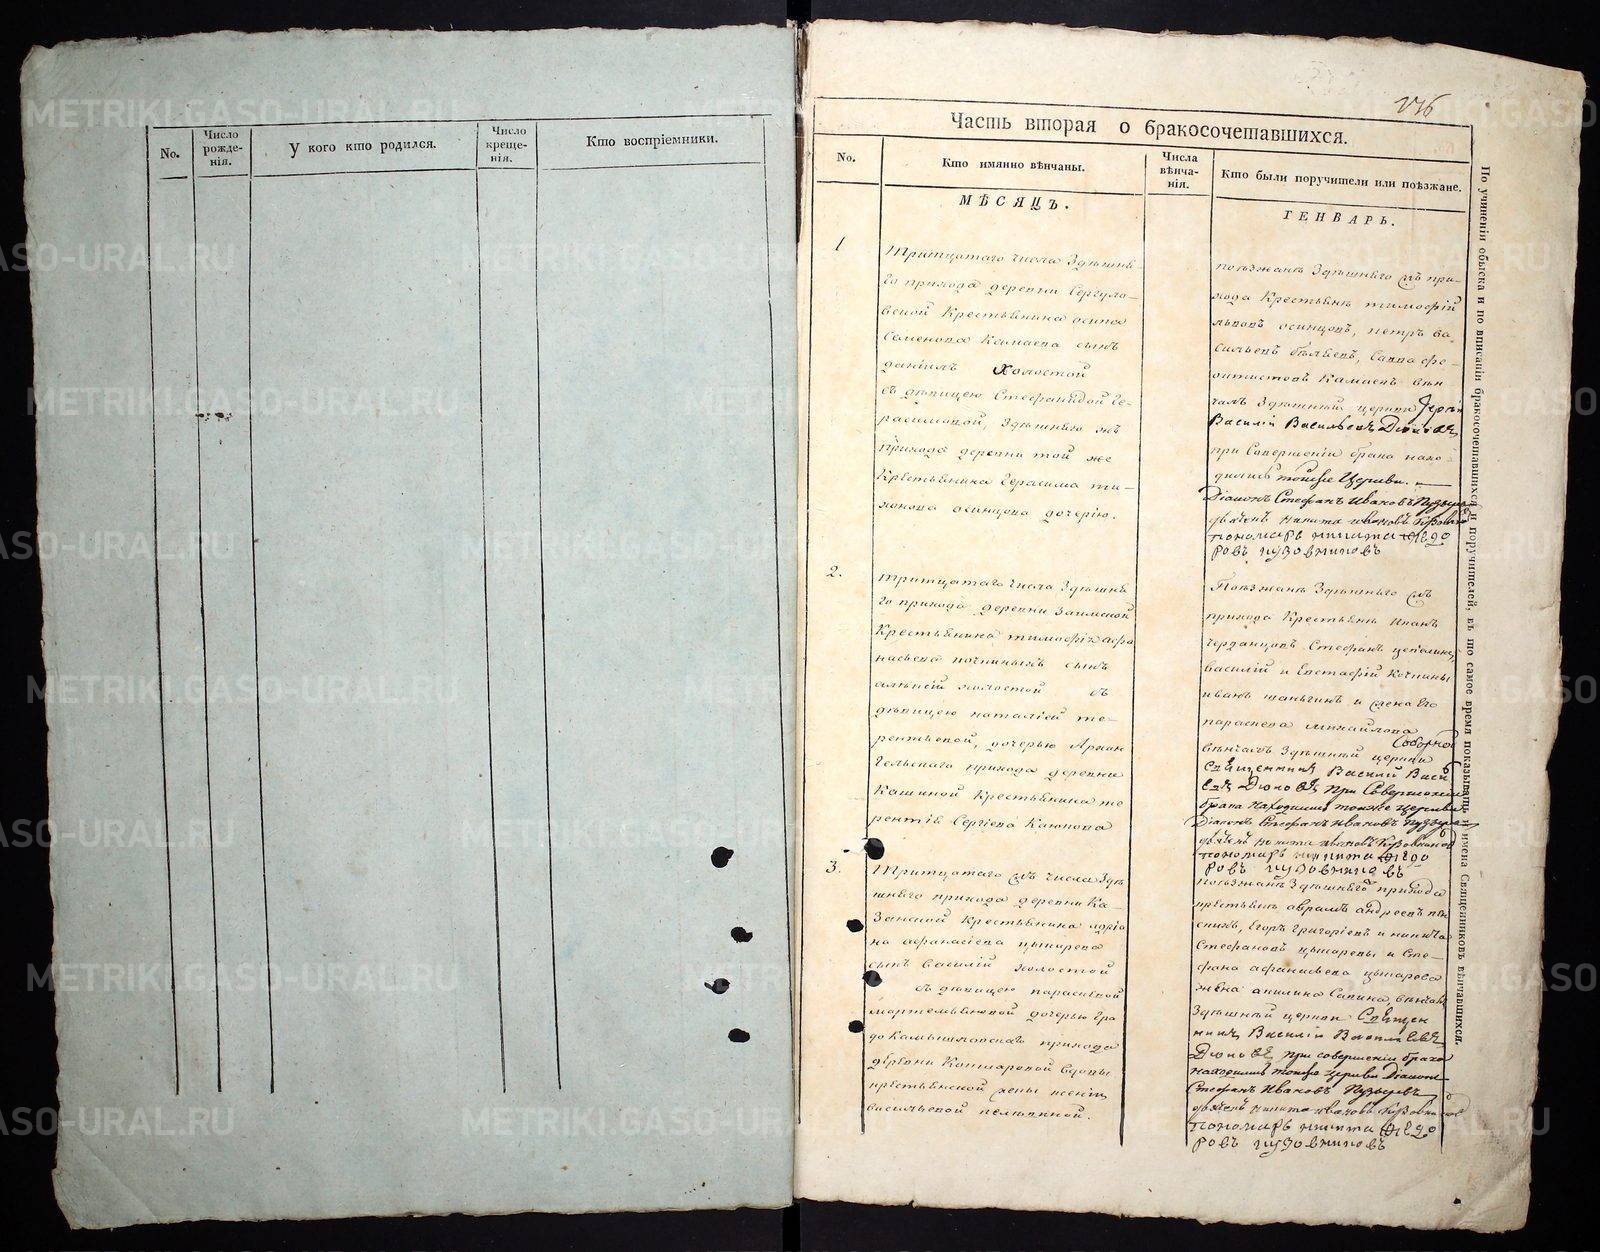 No.
Число рожде- нія.
У кого кто родился.
Число креще- нія.
Кто воспріемники.
176
Часть вторая о бракосочетавшихся.
No.
Кто имянно вѣнчаны.
Числа вѣнча- нія.
Кто были поручители или поѣзжане.
МѢСЯЦЪ.
ГЕНВАРЬ.
1
Тритцатаго числа Здѣшнѣ-
го прихода деревни Сергуло-
вской Крестьянина осипа
Семенова Камаева сынъ
даніилъ Холостой
съ дѣвицею Стефанидой Ге-
расимовой, Здѣшнѣго жъ
прихода деревни той же
Крестьянина Герасима ти-
хонова осинцова дочерію.
поѣзжанѣ Здѣшнѣго жъ при-
хода Крестьянѣ тимофій
львовъ осинцовъ, петръ ва-
сильевъ бѣляевъ, Савва фе-
октистовъ Камаевъ вѣн
чалъ Здѣшный церкви Іерей
Василій Васильевъ
при Совершеніи брака нахо-
дились тойже Церкви.
Діаконъ Стефанъ Ивановъ
дьячекъ никита ивановъ
пономарь никита Федо
ровъ пузовниковъ
2.
тритцатаго числа Здѣшнѣ
го прихода деревни Заимской
Крестьянина тимофѣя афа
насьева сынъ
холостой съ
дѣвицею наталіей те-
рентьевой, дочерью Архан
гельскаго прихода деревни
Кашиной Крестьянина те
рентія Сергіева Каюкова
Поѣзжанѣ Здѣшнѣго жъ
прихода Крестьянѣ Иванъ
черданцовъ Стефанъ
василій и Евстафій
иванъ шаньгинъ и жена Его
параскева михайлова
вѣнчалъ Здѣшный церкви Соборной
Священникъ Василій Васи
евъ при Совершеніи
брака находились тояже церкви
Діаконъ Стефанъ Ивановъ
дьячекъ никита ивановъ
пономарь никита Федо
ровъ пузовниковъ
3.
Тритцатаго жъ числа Здѣ
шнѣго прихода деревни Ка-
Занской Крестьянина
на афанасіева цыпарева
сынъ василій холостой
съ дѣвицею параскевой
мартемьяновой дочерью гра
до Камышловскаго прихода
деревни Кошаровой Вдовы
крестьянской жены ксеніи
васильевой
поѣзжанѣ Здѣшнѣго прихода
крестьянѣ аврамъ андреевъ
Егоръ григоріевъ и никита
Стефановъ цыпаревы и Сте-
фана афанасьева цыпарева
жена акилина Савина, вѣнчалъ
Здѣшный церкви Священ
никъ Василій Васильевъ
при совершеніи брака
находились тояже церкви Діаконъ
Стефанъ Ивановъ
дьячекъ никита ивановъ
пономарь никита Федо
ровъ пузовниковъ
По учиненіи обыска и по вписаніи бракосочетавшихся и поручителей, въ то самое время показывать и имена Священниковъ вѣнчавшихся.
METRIKI.GASO-URAL.RU